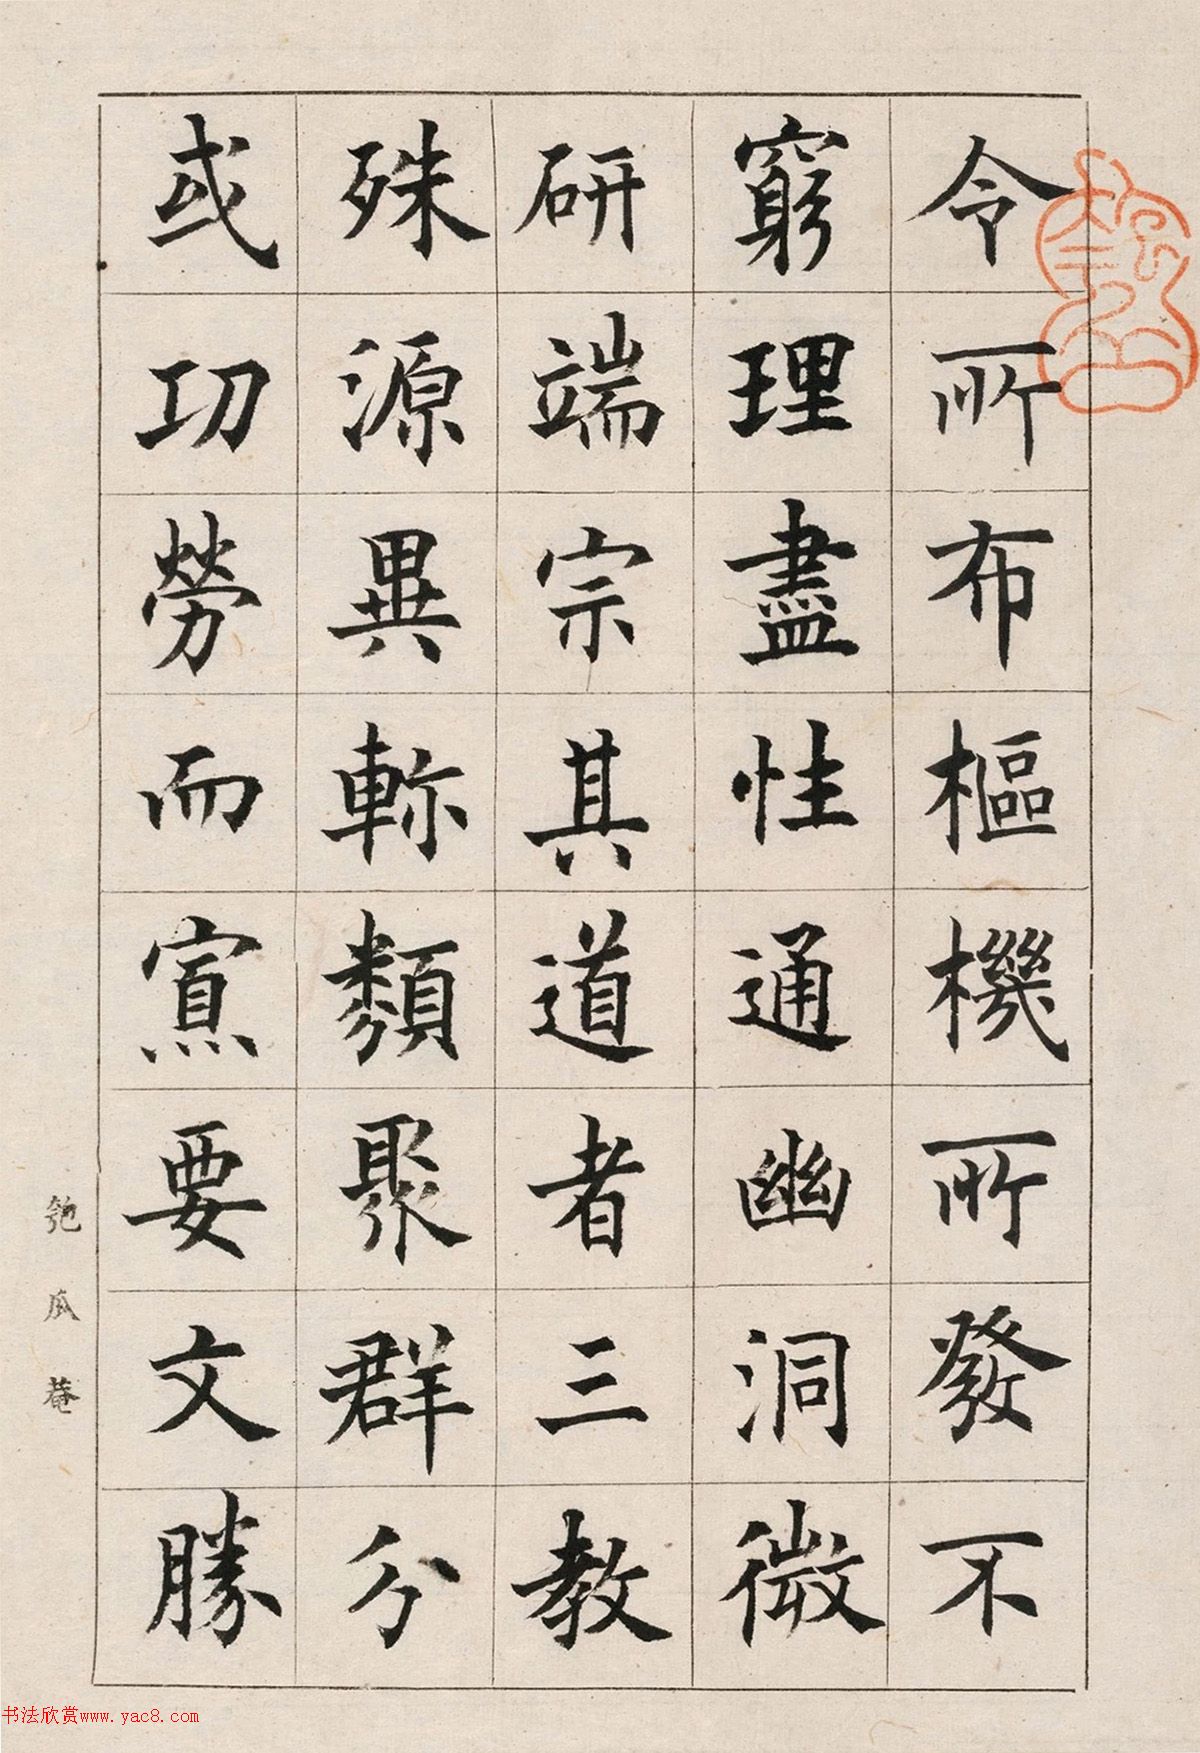 令所布樞機所發不
窮理盡性通幽洞微
研端宗其道者三教
殊源異軫類聚群分
或功勞而寡要文勝
匏瓜菴
书法欣赏www.yac8.com